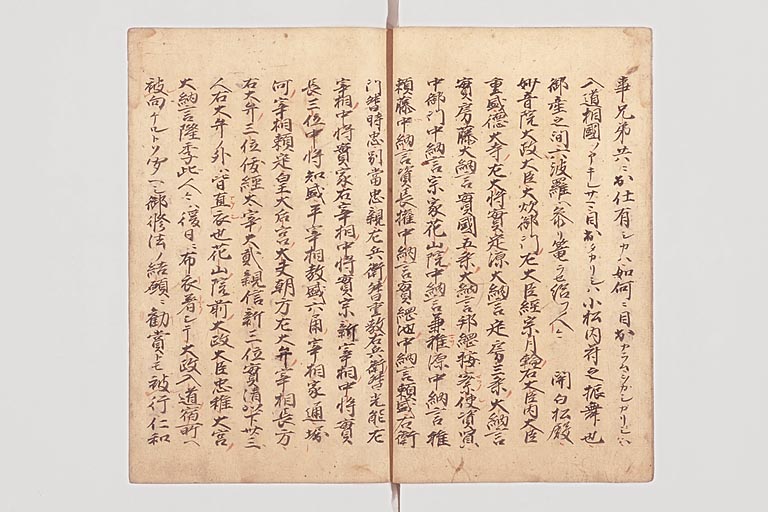 事兄弟共ニ出仕有シカハ如何ニ目出カラムシカシカリシハ
入道相國ノアキレサニ目出カリシハ小松内府之振舞也
御産之間六波羅ヘ参リ篭ラ給フ人々ニハ 關白松殿
妙音院大政大臣大炊御門左大臣經宗月輪右大臣内大臣
重盛徳大寺左大将實定源大納言定房三条大納言
實房藤大納言實國五条大納言邦綱按察使資賢
中御門中納言宗家花山院中納言兼雅源中納言雅
頼藤中納言資長權中納言實綱池中納言頼盛右衛
門督時忠別當忠親左兵衛督重教右兵衛督光能左
宰相中将實家右宰相中将實宗新宰相中将實
長三位中将知盛平宰相教盛六角宰相家通堀
河宰相頼定皇大后宮大夫朝方左大弁宰相長方
右大弁三位俊經太宰大貳親信新三位實清以下卅三
人右大弁ノ外ハ皆直衣也花山院前大政大臣忠雅大宮
大納言隆季此人々ハ後日ニ布衣着シテ大政入道宿所ヘ
被向ケルトソ御修法ノ結願ニ勧賞トモ被行仁和